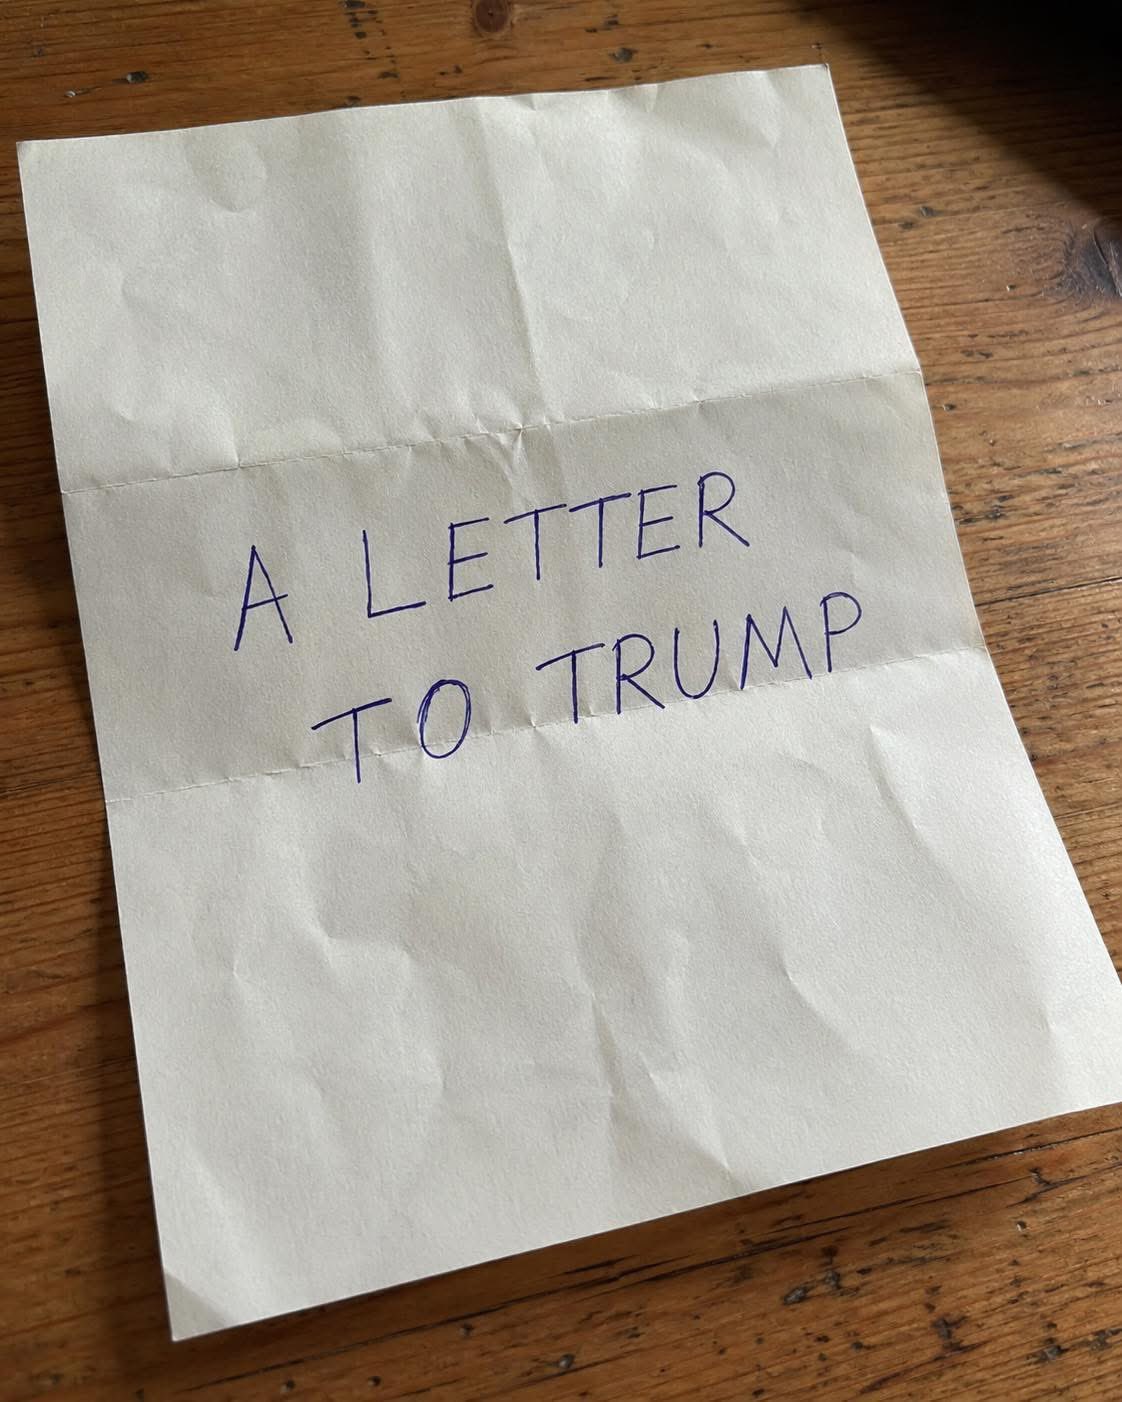 A LETTER
TO TRUMP